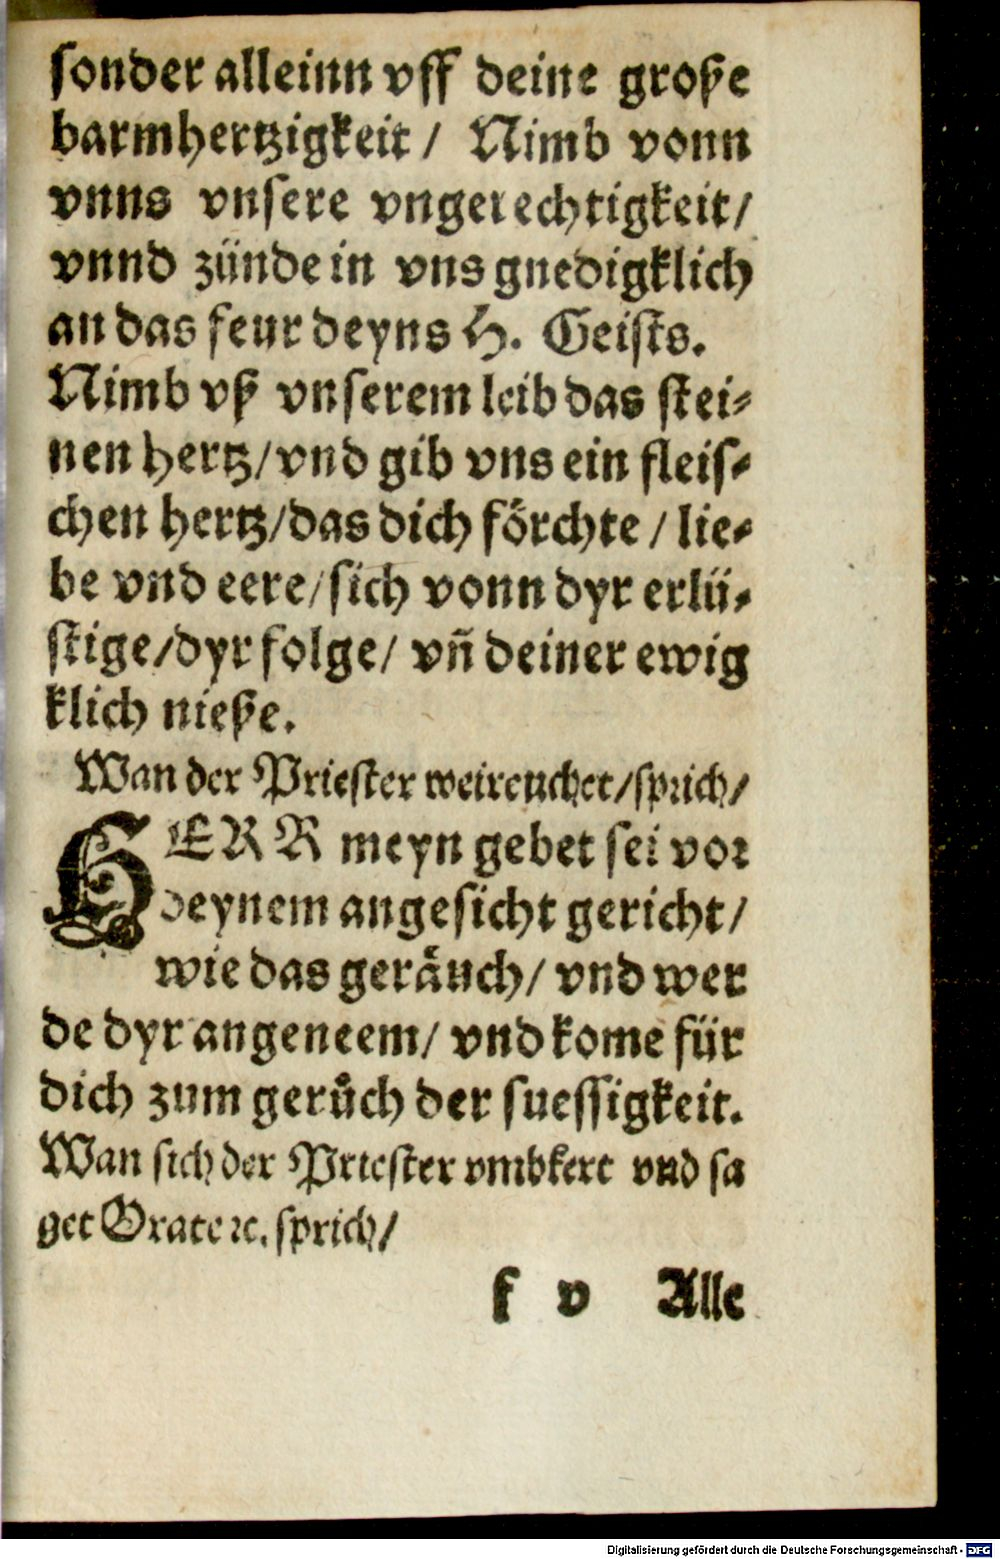 sonder alleinn vff deine große
barmhertzigkeit / Nimb vonn
vnns vnsere vngerechtigkeit/
vnnd zünde in vns gnedigklich
an das feur deyns H. Geists.
Nimb vß vnserem leib das stei⸗
nen hertz/vnd gib vns ein fleis⸗
chen hertz/das dich förchte / lie⸗
be vnd eere/sich vonn dyr erlü⸗
stige/dyr folge/ vñ deiner ewig
klich nieße.
Wan der Priester weireuchet/sprich/
HERR meyn gebet sei vor
deynem angesicht gericht/
wie das geräuch/ vnd wer
de dyr angeneem/ vnd kome für
dich zum gerůch der suessigkeit.
Wan sich der Priester vmbkert vnd sa
get Orate ꝛc. sprich/
k v Alle
Digitalisierung gefördert durch die Deutsche Forschungsgemeinschaft - DFG